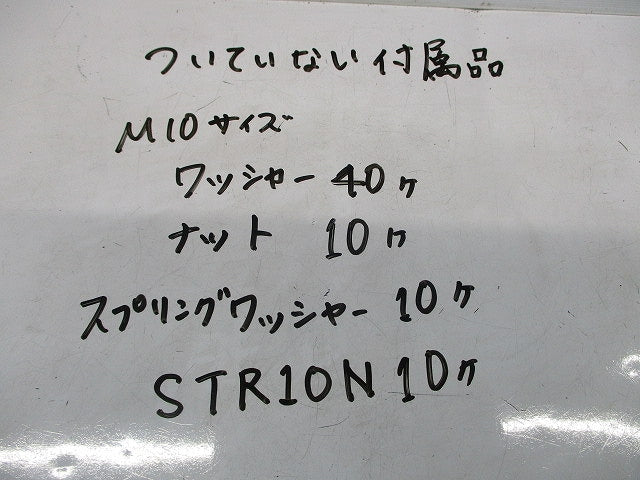 ついていない付属品
M10サイズ
ワッシャー 40ヶ
ナット 10ヶ
スプリングワッシャー 10ヶ
STR10N 10ヶ